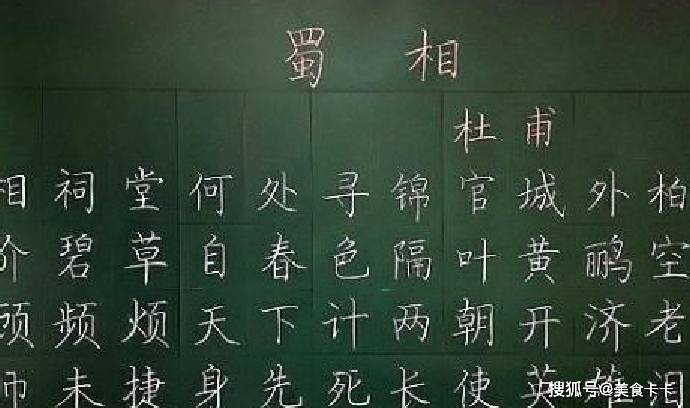 蜀相
杜甫
相祠堂何处寻锦官城外柏
阶碧草自春色隔叶黄鹂空
顾频烦天下计两朝开济老
师未捷身先死长使英雄泪
搜狐号@美食卡卡